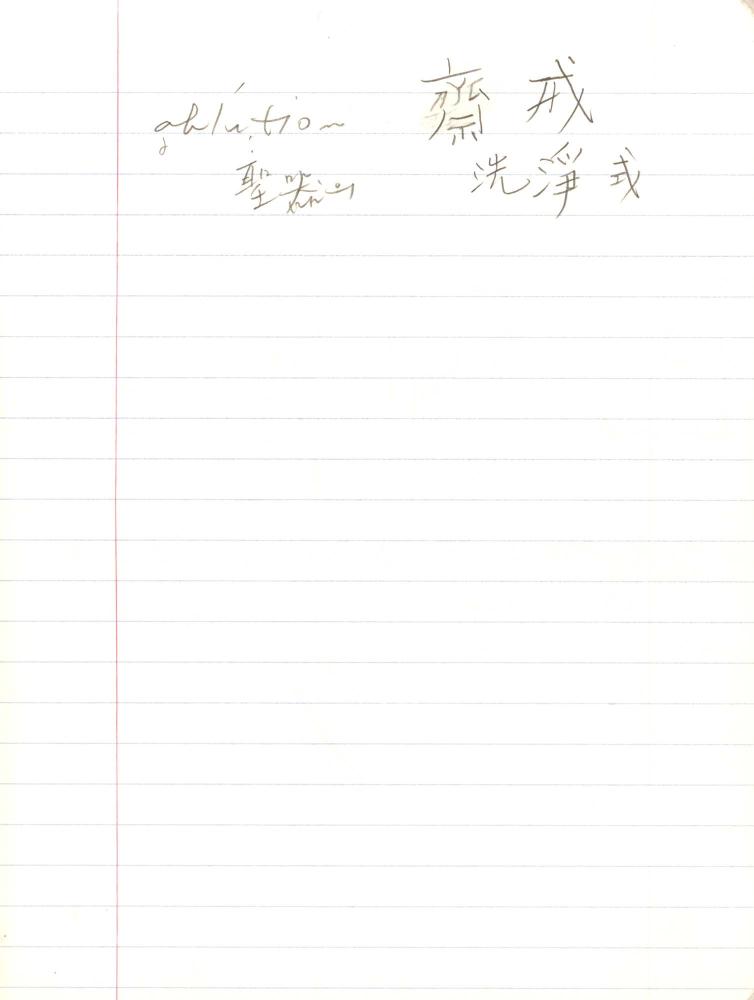 ablution 齋戒
聖器의 洗淨式